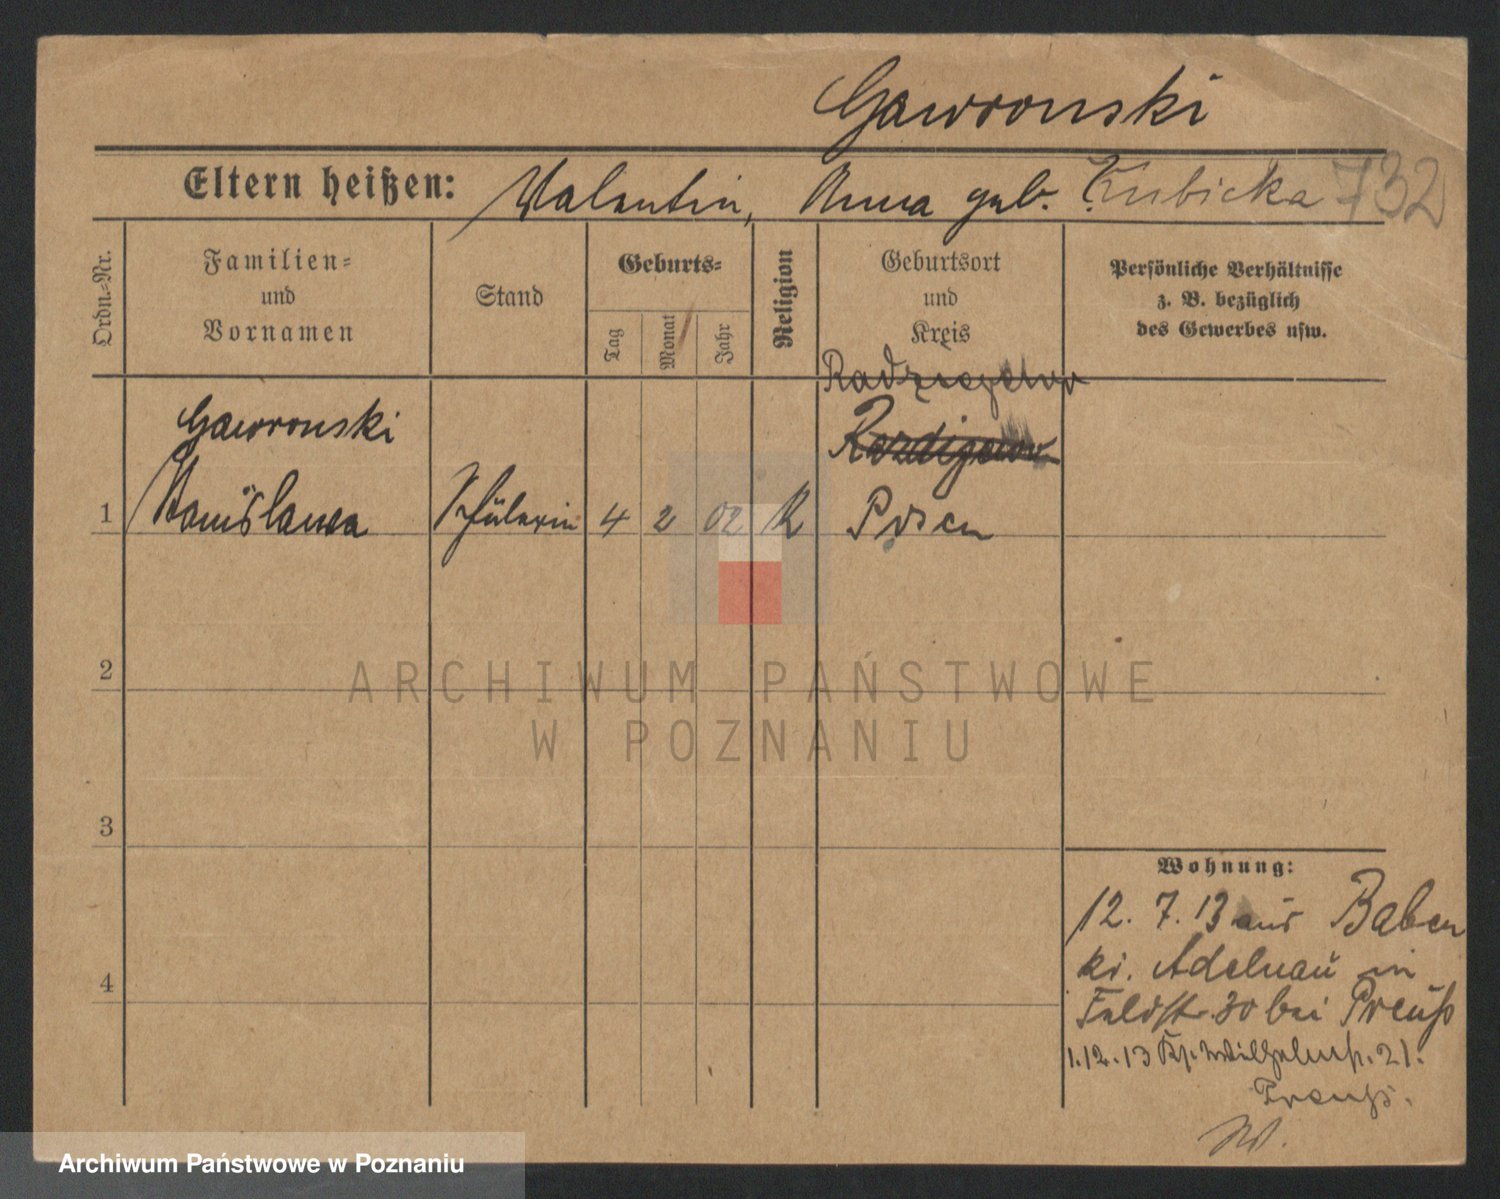 Gawronski
Eltern heißen: Valentin, Anna geb. Kubicka 732
Ordn.-Nr.
Familien- und Vornamen
Stand
Geburts-
Tag
Monat
Jahr
Religion
Geburtsort und Kreis
Persönliche Verhältnisse z. B. bezüglich des Gewerbes usw.
Gawronski
1 Stanislawa Schülerin 4 2 02 K Posen
2
3
4
Wohnung:
12. 7. 13 aus Baben
kr. Adelnau in
Feldstr. 30 bei Preuß
1.12.13 Kr. Wilhelmstr. 21.
Preuß.
W.
ARCHIWUM PAŃSTWOWE
W POZNANIU
Archiwum Państwowe w Poznaniu